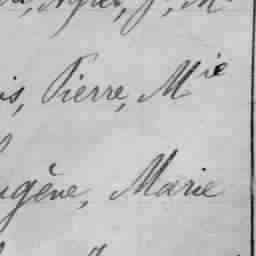 is, Pierre, Mie
ugène, Marie